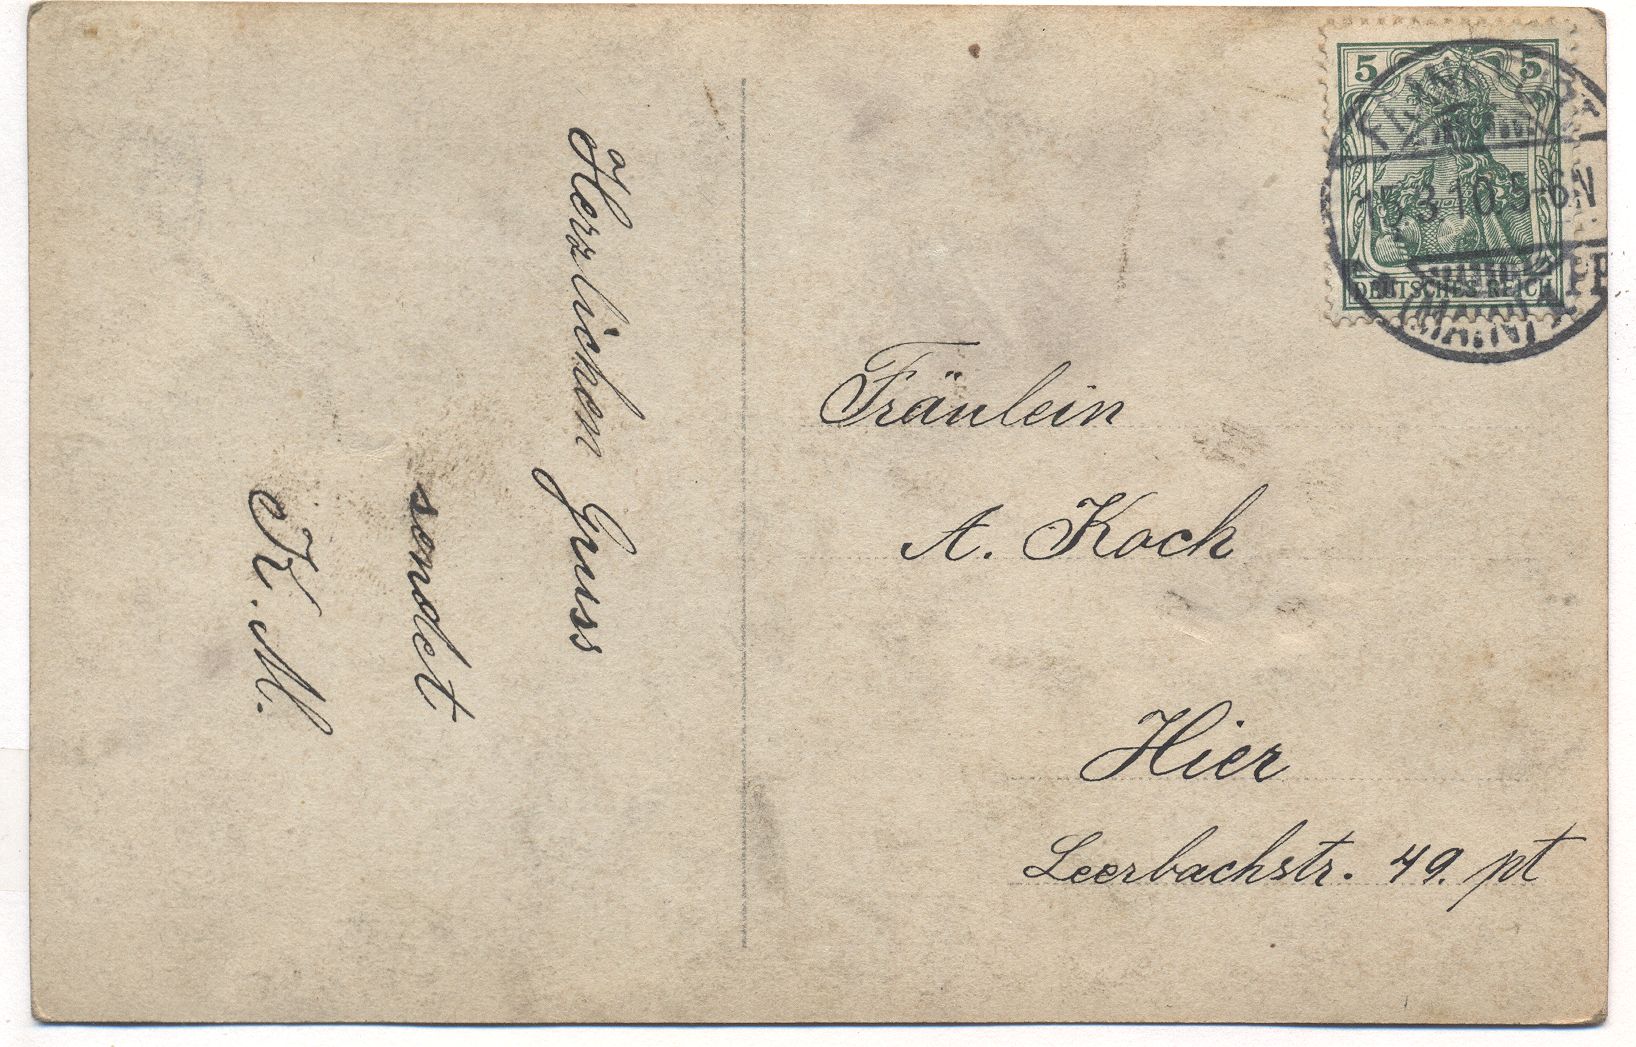 Herzlichen Gruss
sendet
K. M.
5 5
DEUTSCHES REICH
15.3.10.5-6N
(MAIN)
Fräulein
A. Koch
Hier
Leerbachstr. 49. pt